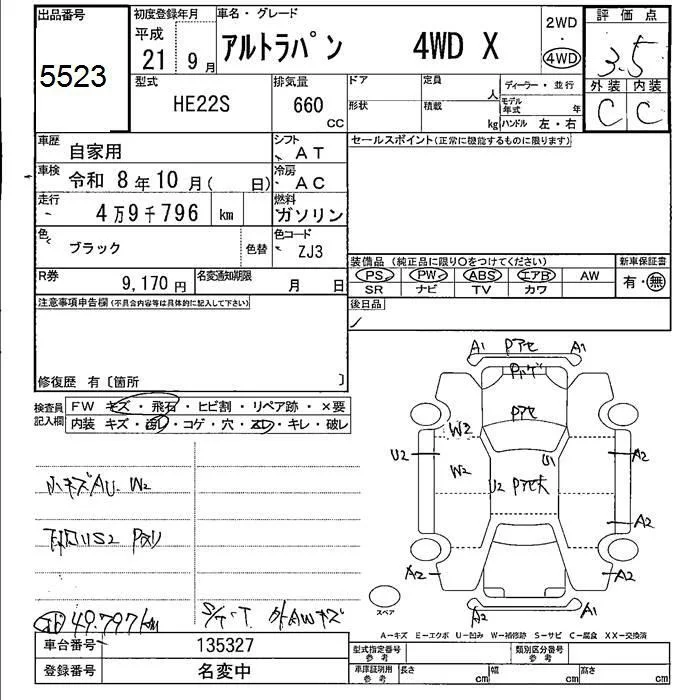 出品番号
5523
初度登録年月
平成
21年9月
車名・グレード
アルトラパン 4WD X
2WD
4WD
評価点
3.5
外装 内装
C C
型式
HE22S
排気量
660
CC
ドア
形状
定員
人
積載
kg
ディーラー・並行
モデル年式
年
ハンドル 左・右
車歴
自家用
シフト
AT
車検
令和 8年10月( 日)
冷房
AC
走行
4万9千796 km
燃料
ガソリン
色
ブラック
色替
色コード
ZJ3
R券
9,170円
名変通知期限
月 日
セールスポイント(正常に機能するものに限ります)
装備品(純正品に限り〇をつけてください)
新車保証書
PS PW ABS エアB AW
有・無
SR ナビ TV カワ
後日品
注意事項申告欄(不具合内容等は具体的に記入して下さい)
修復歴 有〔箇所 〕
検査員
記入欄
FW キズ・飛石・ヒビ割・リペア跡・×要
内装 キズ・汚レ・コゲ・穴・スレ・キレ・破レ
小キズAU. W2
49.797km
外AWキズ
A1 Pアセ A1
Pハゲ
Pアセ
W2
U2
W2
U1
A2
U2
A2
A2
A2
A2
A1
スペア
A-キズ E-エクボ U-凹み W-補修跡 S-サビ C-腐食 XX-交換済
車台番号
135327
登録番号
名変中
型式指定番号
参考
類別区分番号
参考
車庫証明用
参考
長さ
cm
幅
cm
高さ
cm